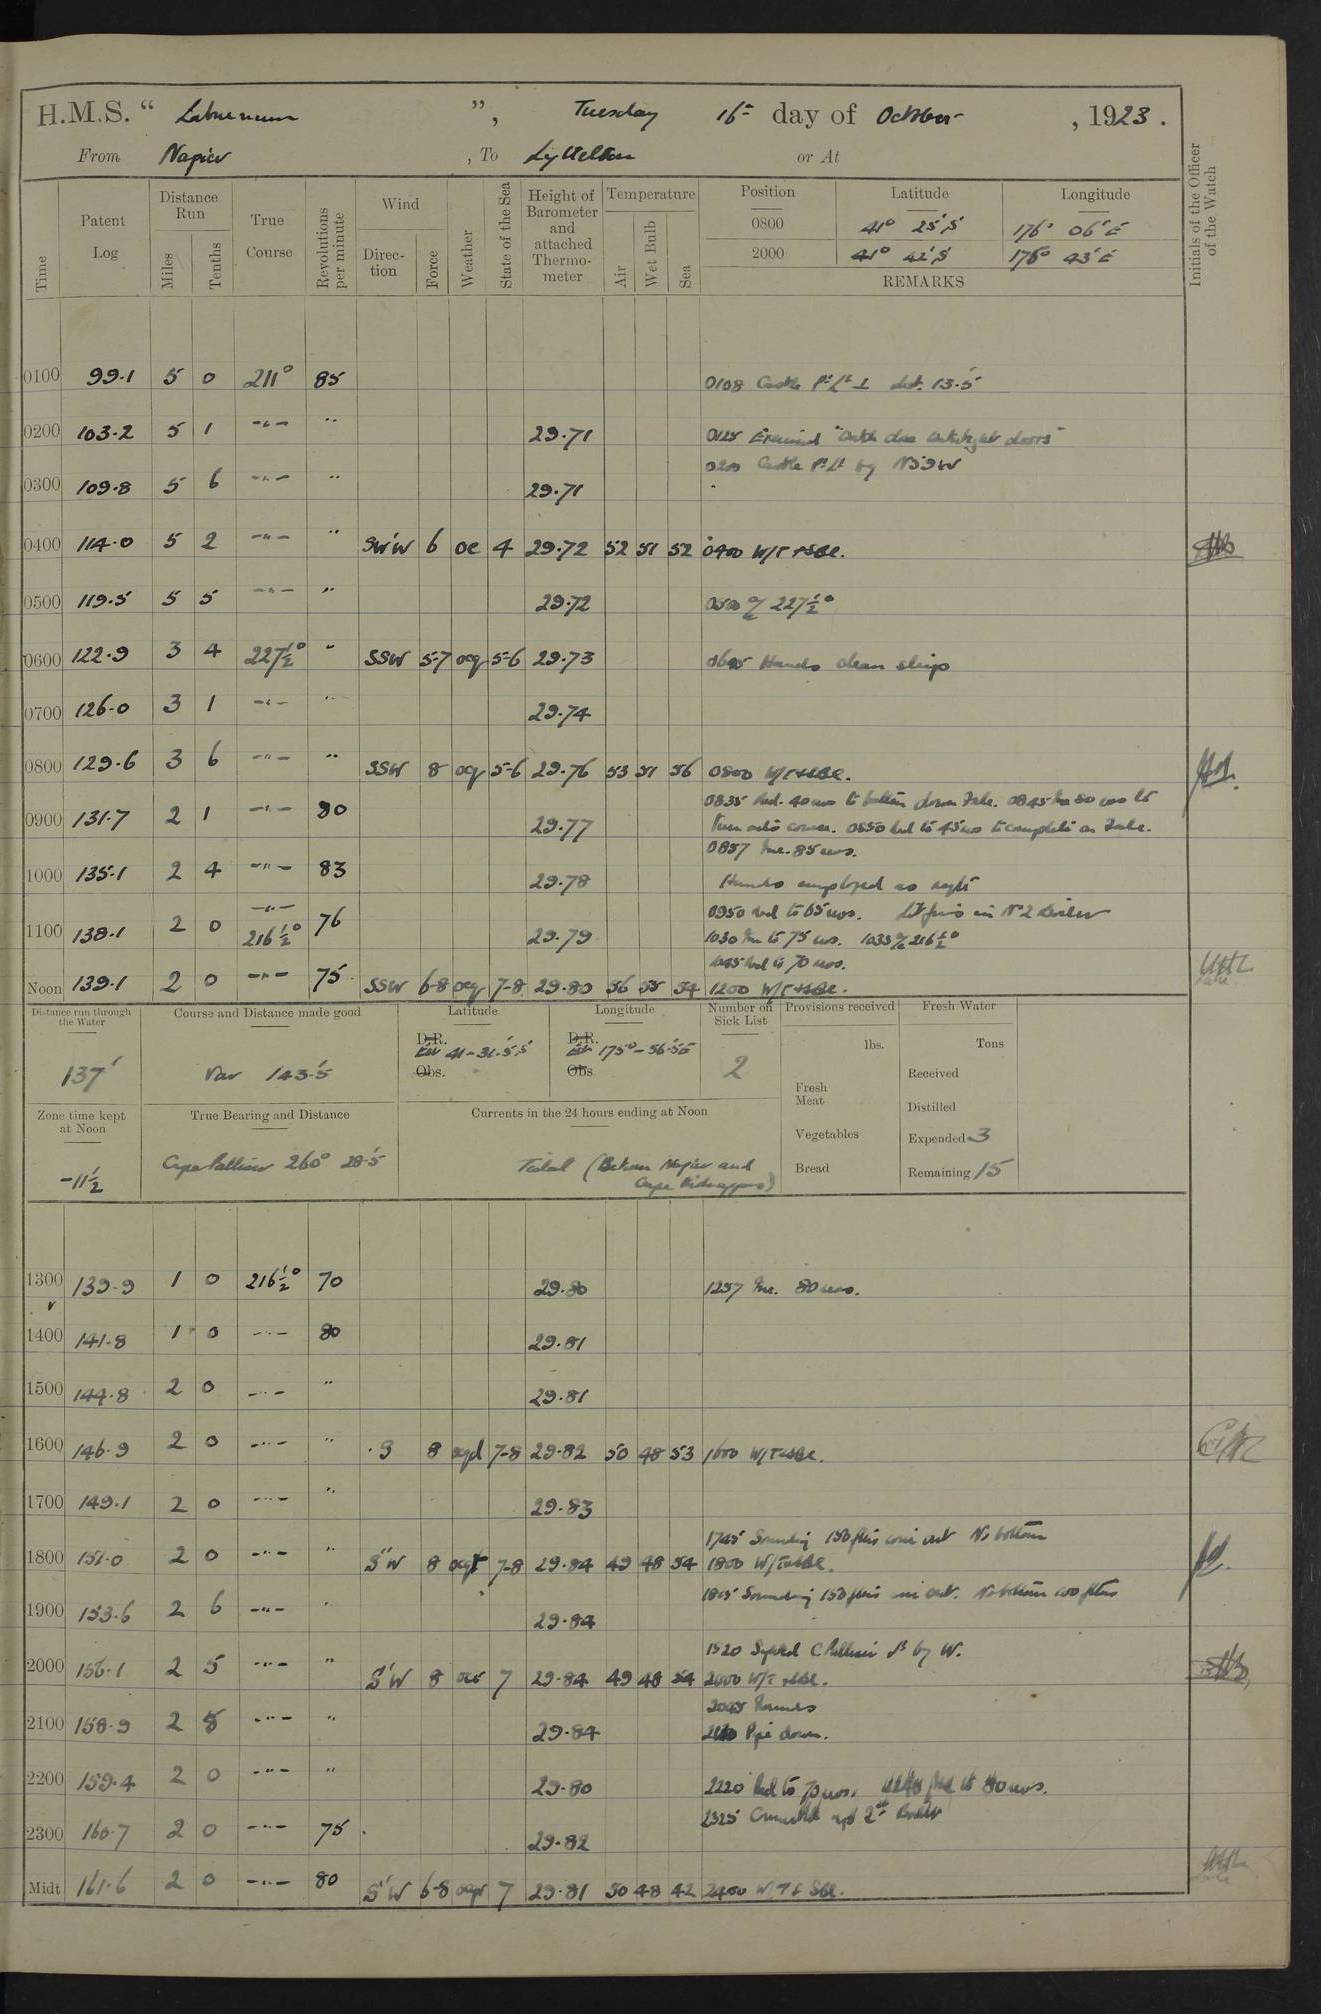 H.M.S. “ Laburnum ”, Tuesday 16th day of October , 1923 .
From Napier , To Lyttelton or At
Time
Patent Log
Distance Run
Miles
Tenths
True Course
Revolutions per minute
Wind
Direction
Force
Weather
State of the Sea
Height of Barometer and attached Thermometer
Temperature
Air
Wet Bulb
Sea
Position Latitude Longitude
0800 41° 25' S 176° 06' E
2000 41° 42' S 176° 43' E
REMARKS
Initials of the Officer of the Watch
0100 99.1 5 0 211° 85 0108 Castle Pt Lt ⊥ dist. 13.5'
0200 103.2 5 1 -"- " 29.71 0125 Examined "Watch close watertight doors"
0200 Castle Pt Lt by N39W
0300 109.8 5 6 -"- " 29.71
0400 114.0 5 2 -"- " SW'W 6 oc 4 29.72 52 51 52 0400 W/T + SBL.
0500 119.5 5 5 -"- " 29.72 0500 a/c 227½°
0600 122.9 3 4 227½° " SSW 5-7 ocq 5-6 29.73 Hands clean ship
0700 126.0 3 1 -"- " 29.74
0800 129.6 3 6 -"- " SSW 8 ocq 5-6 29.76 53 51 56 0800 W/T + SBL.
0835 Red. 40 revs to batten down 0845 Inc 80 revs to
0900 131.7 2 1 -"- 80 29.77 turn onto course. 0850 Red to 45 revs to complete
0857 Inc. 85 revs.
1000 135.1 2 4 -"- 83 29.78 Hands employed as reqte
-"- 0950 Red to 65 revs. Lit fires in No 2 Boiler
1100 138.1 2 0 216½° 76 29.79 1030 Inc to 75 revs. 1033 a/c 216½°
1045 Red to 70 revs.
Noon 139.1 2 0 -"- 75 SSW 6-8 ocq 7-8 29.80 56 55 54 1200 W/T + SBL.
Distance run through the Water
137'
Course and Distance made good
Var 143.5'
Latitude
D.R.
41 - 31.5' S
Obs.
Longitude
D.R.
175° - 56.5' E
Obs
Number on Sick List
2
Provisions received
lbs.
Fresh Meat
Vegetables
Bread
Fresh Water
Tons
Received
Distilled
Expended 3
Remaining 15
Zone time kept at Noon
-11½
True Bearing and Distance
Cape Palliser 260° 28.5
Currents in the 24 hours ending at Noon
Tidal (Between Napier and
Cape Kidnappers)
1300 139.9 1 0 216½° 70 29.80 1257 Inc. 80 revs.
1400 141.8 1 0 -"- 80 29.81
1500 144.8 2 0 -"- " 29.81
1600 146.9 2 0 -"- " S 8 oqd 7-8 29.82 50 48 53 1600 W/T + SBL.
1700 149.1 2 0 -"- " 29.83
1745 Sounding 150 fms wire out No bottom
1800 151.0 2 0 -"- " S"W 8 7-8 29.84 49 48 54 1800 W/T + SBL.
1900 153.6 2 6 -"- " 29.84 1815 Sounding 150 fms wire out. No bottom 100 fms
1920 Sighted C Palliser Lt by W.
2000 156.1 2 5 -"- " S'W 8 7 29.84 49 48 54 2000 W/T + SBL.
2045 Rounds
2100 158.9 2 8 -"- " 29.84 Pipe down.
2200 159.4 2 0 -"- " 29.80 2220 Red to 70 revs. to 80 revs.
2325 Connected up 2nd Boiler
2300 160.7 2 0 -"- 75 29.82
Midt 161.6 2 0 -"- 80 S"W 6-8 7 29.81 50 48 42 2400 W/T & SBL.